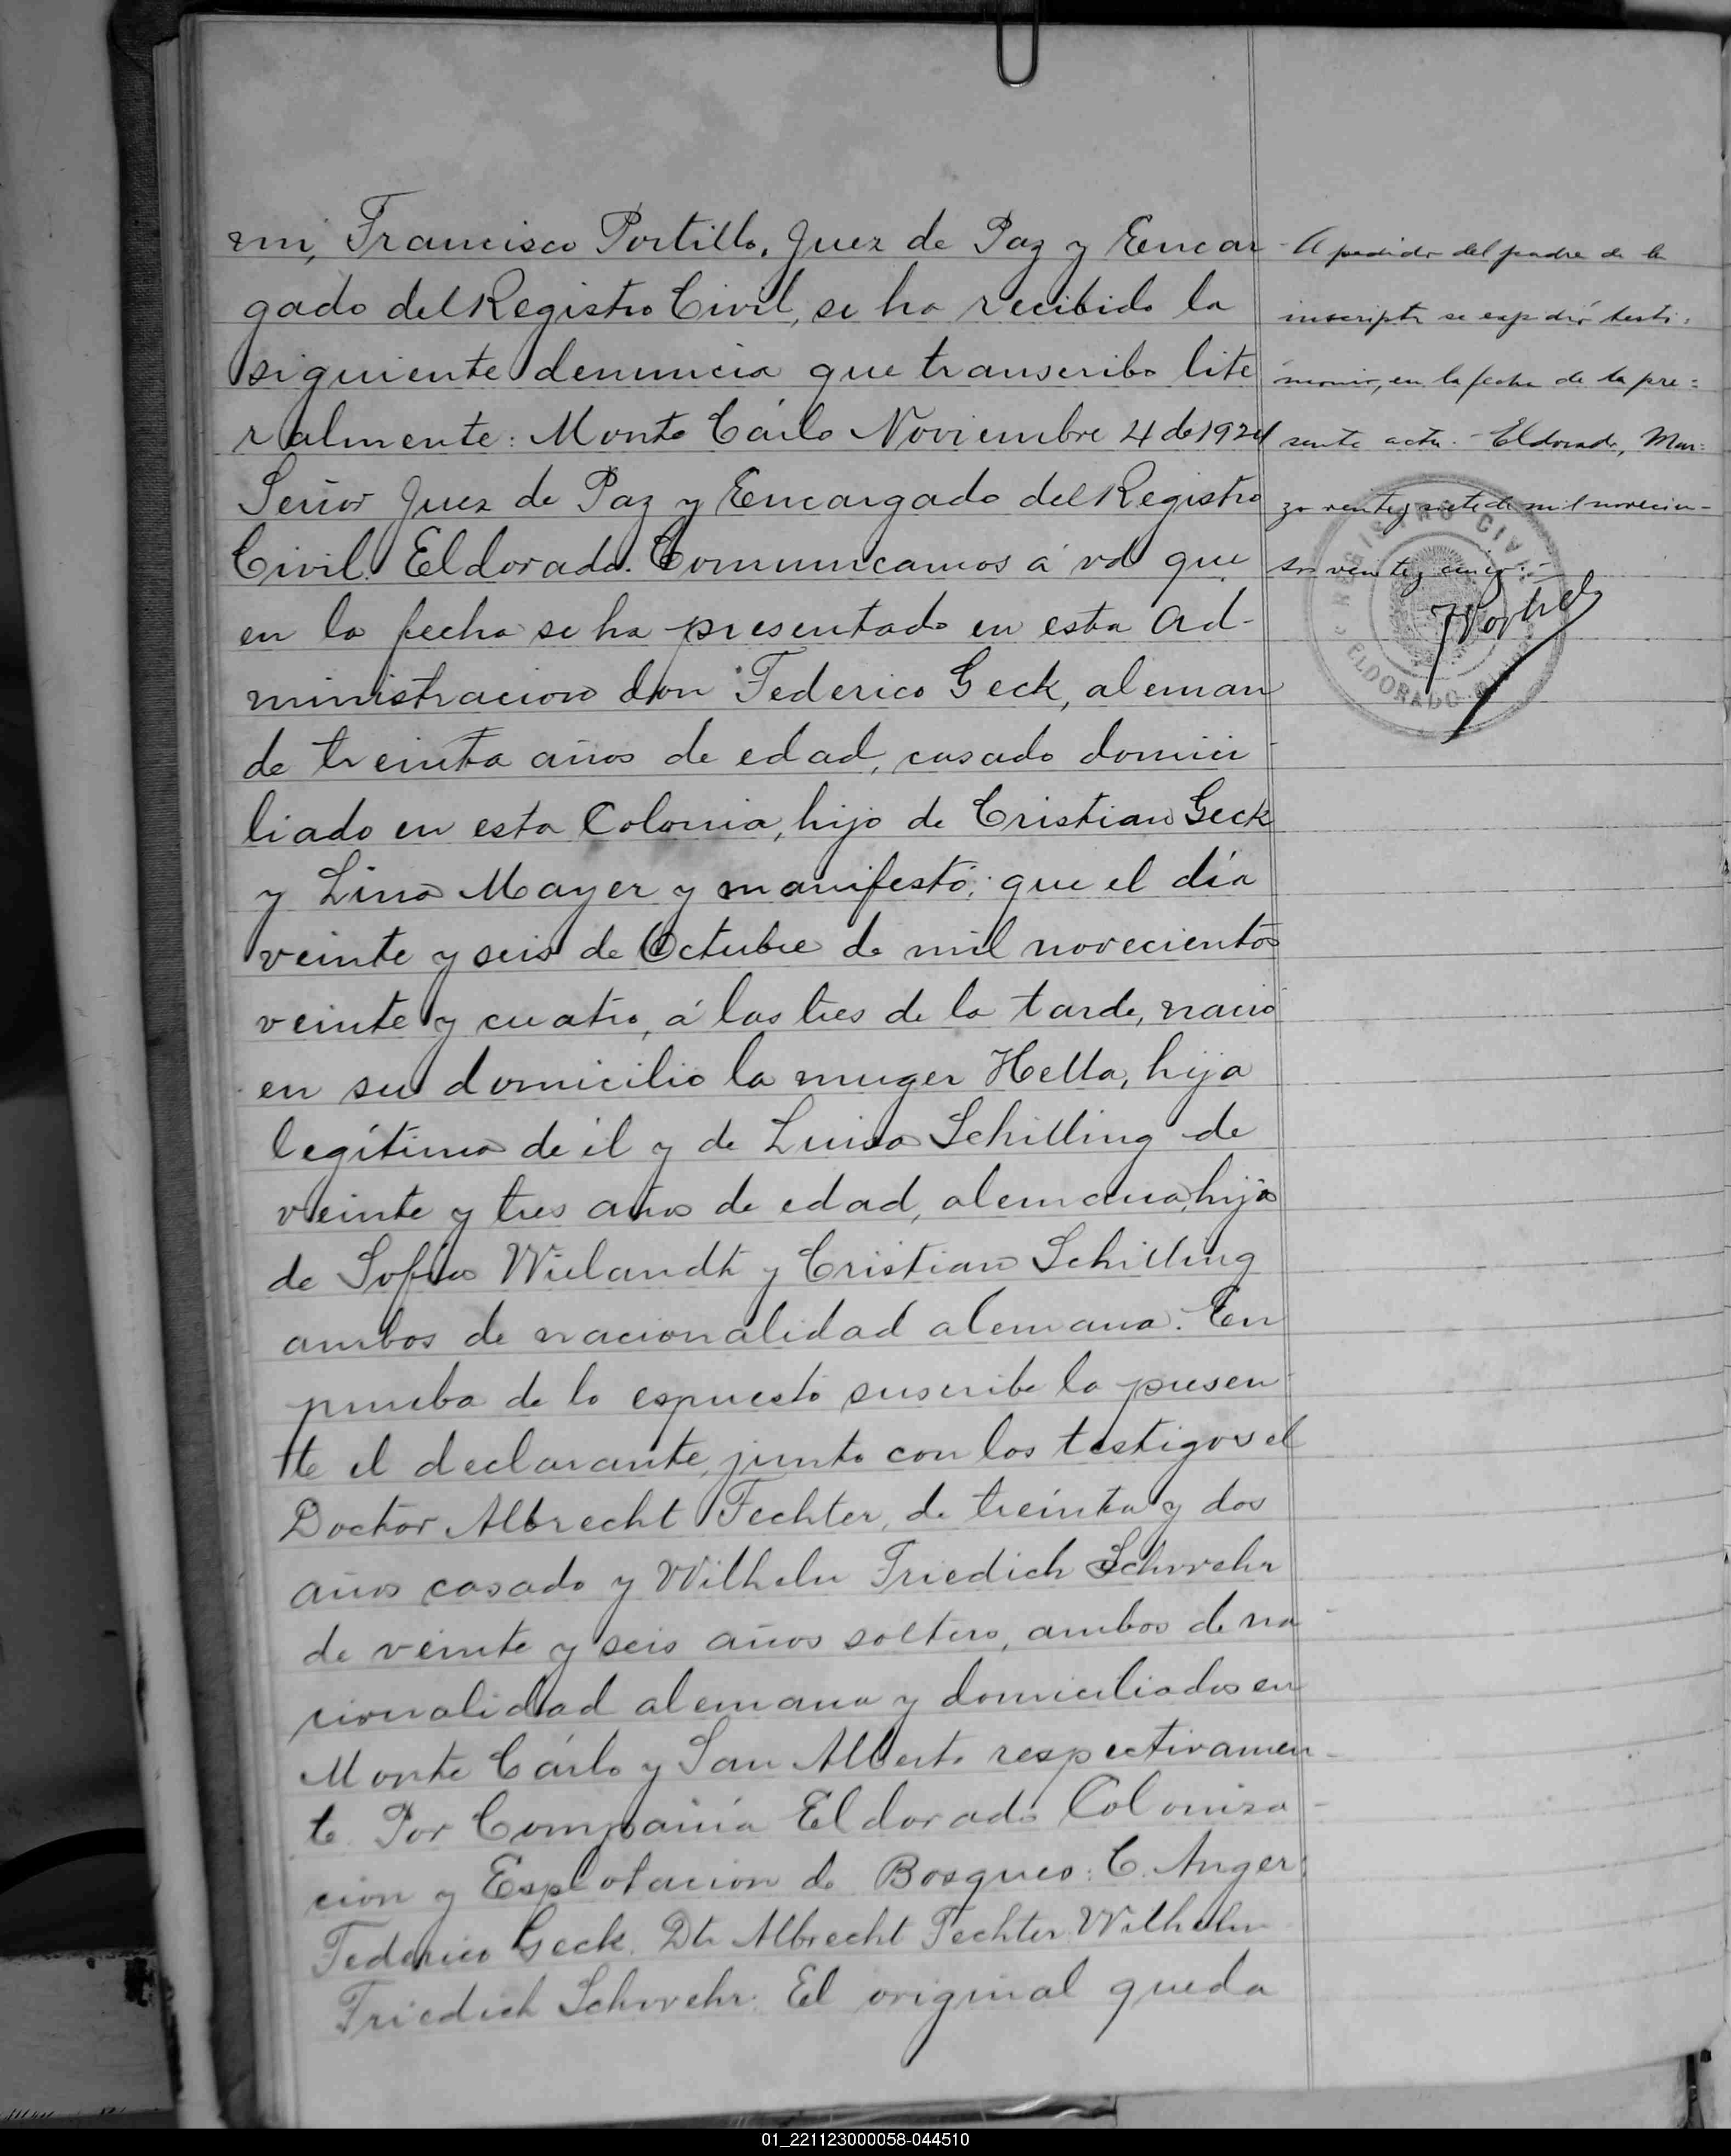 mi, Francisco Portillo, Juez de Paz y Encar
gado del Registro Civil, se ha recibido la
siguiente denuncia que transcribo lite
ralmente: Monte Cárlo Noviembre 4 de 1924
Señor Juez de Paz y Encargado del Registro
Civil. Eldorado. Comunicamos á vd que
en la fecha se ha presentado en esta Ad-
ministracion don Federico Geck, aleman
de treinta años de edad, casado domici
liado en esta Colonia, hijo de Cristian Geck
y Lina Mayer y manifestó; que el día
veinte y seis de Octubre de mil novecientos
veinte y cuatro, á las tres de la tarde, nació
en su domicilio la muger Hella, hija
legítima de él y de Luisa Schilling de
veinte y tres años de edad, alemana, hija
de Sofia Wielandt y Cristian Schilling
ambos de nacionalidad alemana. En
prueba de lo espuesto suscribe la presen
te el declarante, junto con los testigos el
Doctor Albrecht Fechter, de treinta y dos
años casado y Wilhelm Friedich Schwehr
de veinte y seis años soltero, ambos de na
cionalidad alemana y domiciliados en
Monte Cárlo y San Alberto respectivamen-
te. Por Compañía Eldorado Coloniza-
cion y Esplotacion de Bosques: C. Anger.
Federico Geck. Dr Albrecht Fechter. Wilhelm
Friedich Schwehr. El original queda
A pedido del padre de la
inscripta se expidió testi=
monio, en la fecha de la pre=
sente acta.- Eldorado, Mar=
zo veintey siete de mil novecien-
tos veintey cinco.-
REGISTRO CIVIL
ELDORADO
01_221123000058-044510